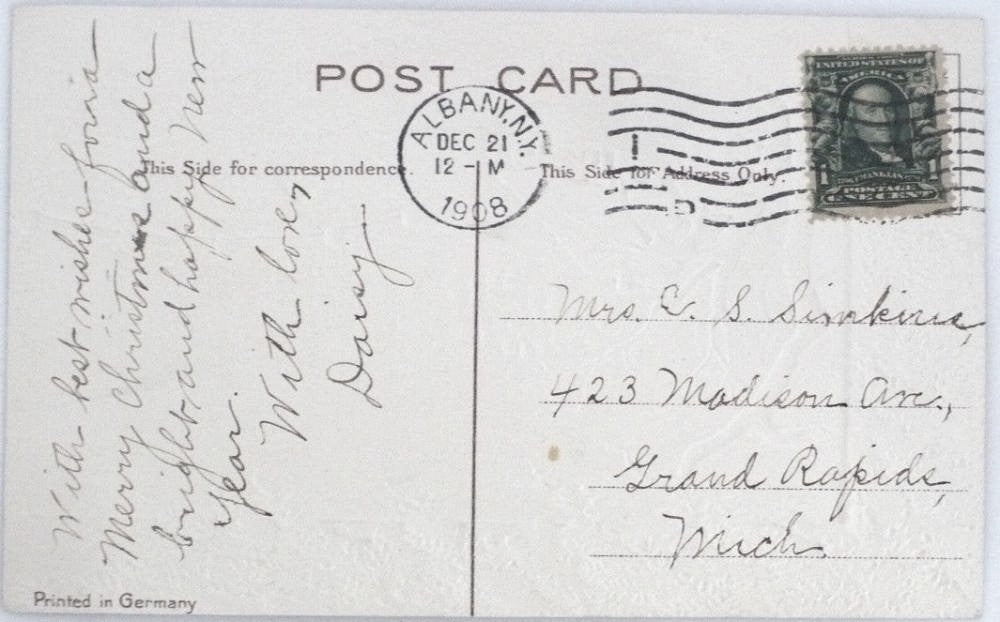 POST CARD
ALBANY, N.Y.
DEC 21
12 - M
1908
UNITED STATES OF
AMERICA
1 1
FRANKLIN
POSTAGE
ONE CENT
This Side for correspondence.
This Side for Address Only.
With best wishes for a
Merry Christmas and a
bright and happy New
Year.
With love,
Daisy
Mrs. E. S. Simkins,
423 Madison Ave.,
Grand Rapids,
Mich.
Printed in Germany